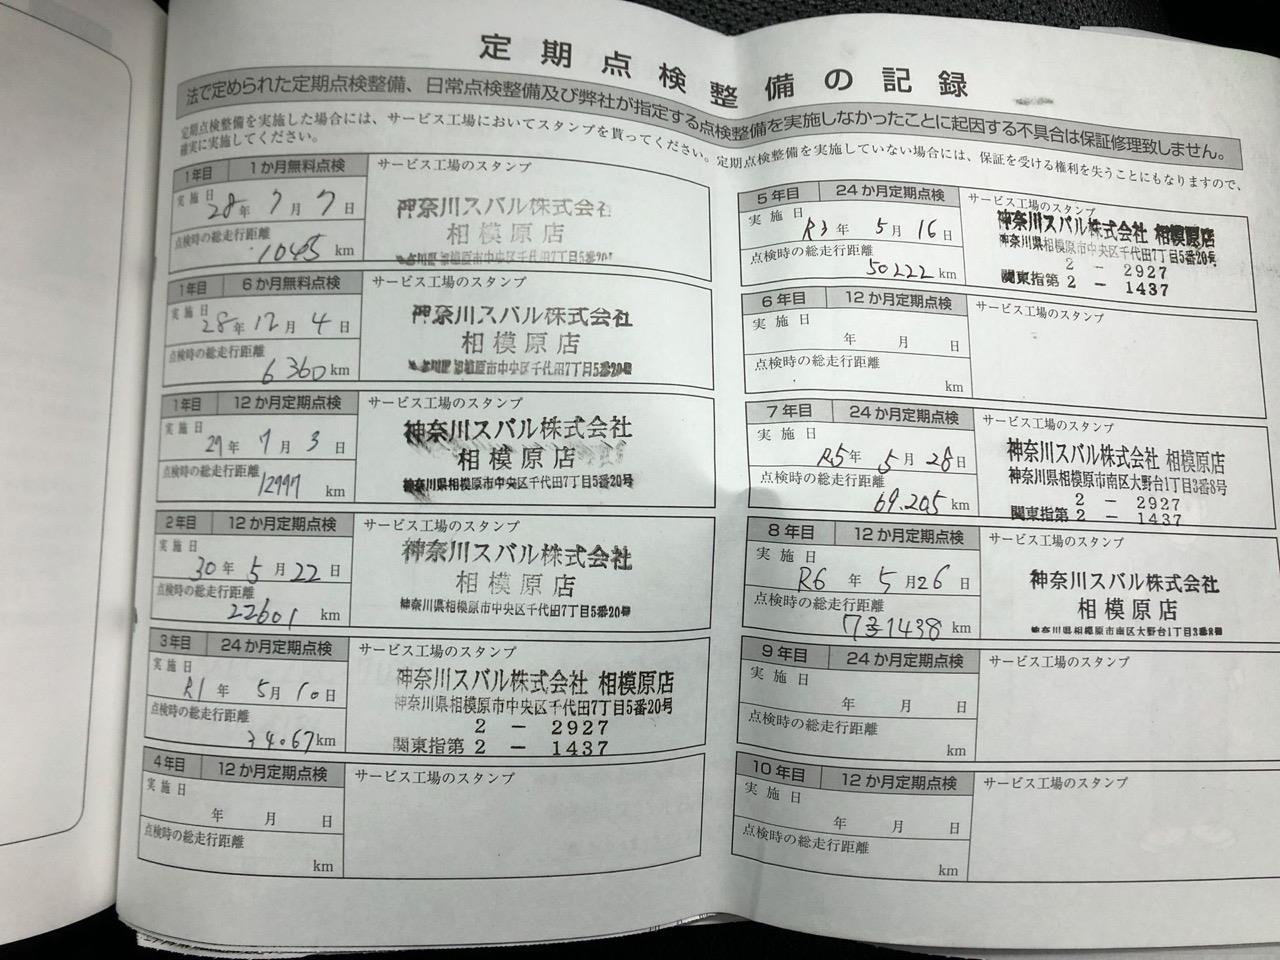 定期点検整備の記録
法で定められた定期点検整備、日常点検整備及び弊社が指定する点検整備を実施しなかったことに起因する不具合は保証修理致しません。
定期点検整備を実施した場合には、サービス工場においてスタンプを貰ってください。定期点検整備を実施していない場合には、保証を受ける権利を失うことにもなりますので、
確実に実施してください。
1年目 1か月無料点検
サービス工場のスタンプ
実施日
28年 7月 7日
点検時の総走行距離
1045 km
神奈川スバル株式会社
相模原店
相模原市中央区千代田7丁目5番20号
1年目 6か月無料点検
サービス工場のスタンプ
実施日
28年 12月 4日
点検時の総走行距離
6360 km
神奈川スバル株式会社
相模原店
相模原市中央区千代田7丁目5番20号
1年目 12か月定期点検
サービス工場のスタンプ
実施日
29年 7月 3日
点検時の総走行距離
12997 km
神奈川スバル株式会社
相模原店
神奈川県相模原市中央区千代田7丁目5番20号
2年目 12か月定期点検
サービス工場のスタンプ
実施日
30年 5月 22日
点検時の総走行距離
22601 km
神奈川スバル株式会社
相模原店
神奈川県相模原市中央区千代田7丁目5番20号
3年目 24か月定期点検
サービス工場のスタンプ
実施日
R1年 5月 10日
点検時の総走行距離
34067 km
神奈川スバル株式会社 相模原店
神奈川県相模原市中央区千代田7丁目5番20号
2 － 2927
関東指第 2 － 1437
4年目 12か月定期点検
サービス工場のスタンプ
実施日
年 月 日
点検時の総走行距離
km
5年目 24か月定期点検
サービス工場のスタンプ
実施日
R3年 5月 16日
点検時の総走行距離
50222 km
神奈川スバル株式会社 相模原店
神奈川県相模原市中央区千代田7丁目5番20号
2 － 2927
関東指第 2 － 1437
6年目 12か月定期点検
サービス工場のスタンプ
実施日
年 月 日
点検時の総走行距離
km
7年目 24か月定期点検
サービス工場のスタンプ
実施日
R5年 5月 28日
点検時の総走行距離
69.205 km
神奈川スバル株式会社 相模原店
神奈川県相模原市南区大野台1丁目3番8号
2 － 2927
関東指第 2 － 1437
8年目 12か月定期点検
サービス工場のスタンプ
実施日
R6年 5月26日
点検時の総走行距離
km
神奈川スバル株式会社
相模原店
神奈川県相模原市南区大野台1丁目3番8号
9年目 24か月定期点検
サービス工場のスタンプ
実施日
年 月 日
点検時の総走行距離
km
10年目 12か月定期点検
サービス工場のスタンプ
実施日
年 月 日
点検時の総走行距離
km